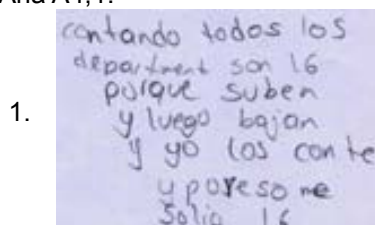 contando todos los
department son 16
1. porque suben
y luego bajan
y yo los conte
y por eso me
salio 16